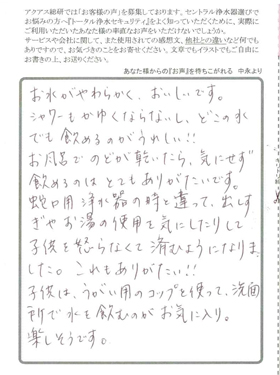 アクアス総研では『お客様の声』を募集しております。セントラル浄水器選びで
お悩みの方へ『トータル浄水セキュリティ』をよく知っていただくために、実際に
ご利用いただいたあなたの率直なお声をいただけないでしょうか。
サービスや会社に関して、また使用されての感想文、他社との違いなど何でも
ありますので、お気づきのことをお寄せください。文章でもイラストでもご自由に
お書きの上、お送りください。
あなた様からの『お声』を待ちこがれる 中永より
お水がやわらかく、おいしいです。
シャワーもかゆくならないし、どこの水
でも飲めるのがうれしい!!
お風呂でのどが乾いたら、気にせず
飲めるのはとてもありがたいです。
蛇口用浄水器の時と違って、出しす
ぎやお湯の使用を気にしたりして
子供を怒らなくて済むようになりま
した。これもありがたい!!
子供は、うがい用のコップを使って、洗面
所で水を飲むのがお気に入り。
楽しそうです。